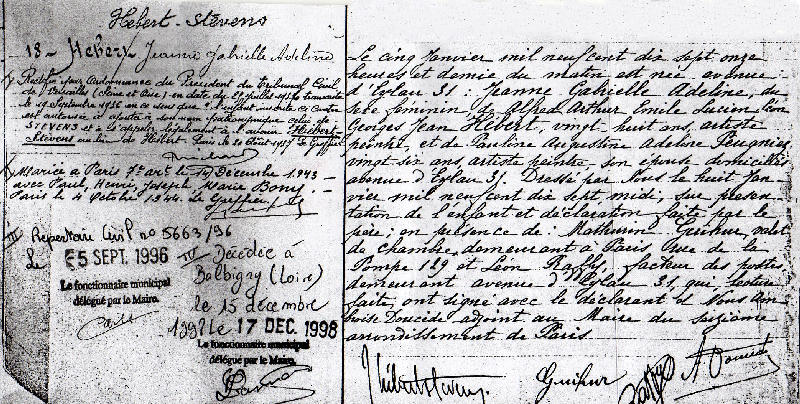 Hébert-Stévens
18 - Hébert Jeanne Gabrielle Adeline
Rectifié par Ordonnance du Président du Tribunal Civil
de Versailles (Seine et Oise) en date du transcrite
le 19 Septembre 1936 en ce sens que l'enfant inscrite ci-contre
est autorisée à ajouter à son nom patronymique celui de
STEVENS et à s'appeler légalement à l'avenir "Hébert-
Stevens au lieu de Hébert. Paris le 20 Août 1937 Le Greffier
Mariée à Paris 7e arrt le 14 Décembre 1943
avec Paul, Henri, Joseph Marie Bony. -
Paris le 4 Octobre 1944. Le Greffier
III Répertoire Civil no 5663/96
Le 25 SEPT. 1996
Le fonctionnaire municipal
délégué par le Maire.
IV Décédée à
Balbigny (Loire)
le 15 décembre
199 Le 17 DEC. 1998
Le fonctionnaire municipal
délégué par le Maire.
Le cinq Janvier mil neuf cent dix sept onze
heures et demie du matin est née avenue
d'Eylau 31 : Jeanne Gabrielle Adeline, du
sexe féminin de Alfred Arthur Emile Lucien Léon
Georges Jean Hébert, vingt huit ans, artiste
peintre, et de Pauline Augustine Adeline Peugniez
vingt six ans, artiste peintre, son épouse domiciliés
avenue d'Eylau 31. Dressé par Nous le huit Jan-
vier mil neuf cent dix sept, midi, sur présen-
tation de l'enfant et déclaration faite par le
père ; en présence de : Mathurin Guihur, valet
de chambre, demeurant à Paris rue de la
Pompe 129 et Léon Raffy, facteur des postes
demeurant avenue d'Eylau 31, qui, lecture
faite, ont signé avec le déclarant et Nous Am-
broise Doucède adjoint au Maire du seizième
arrondissement de Paris.
Hébert Stevens Guihur Raffy A Doucède